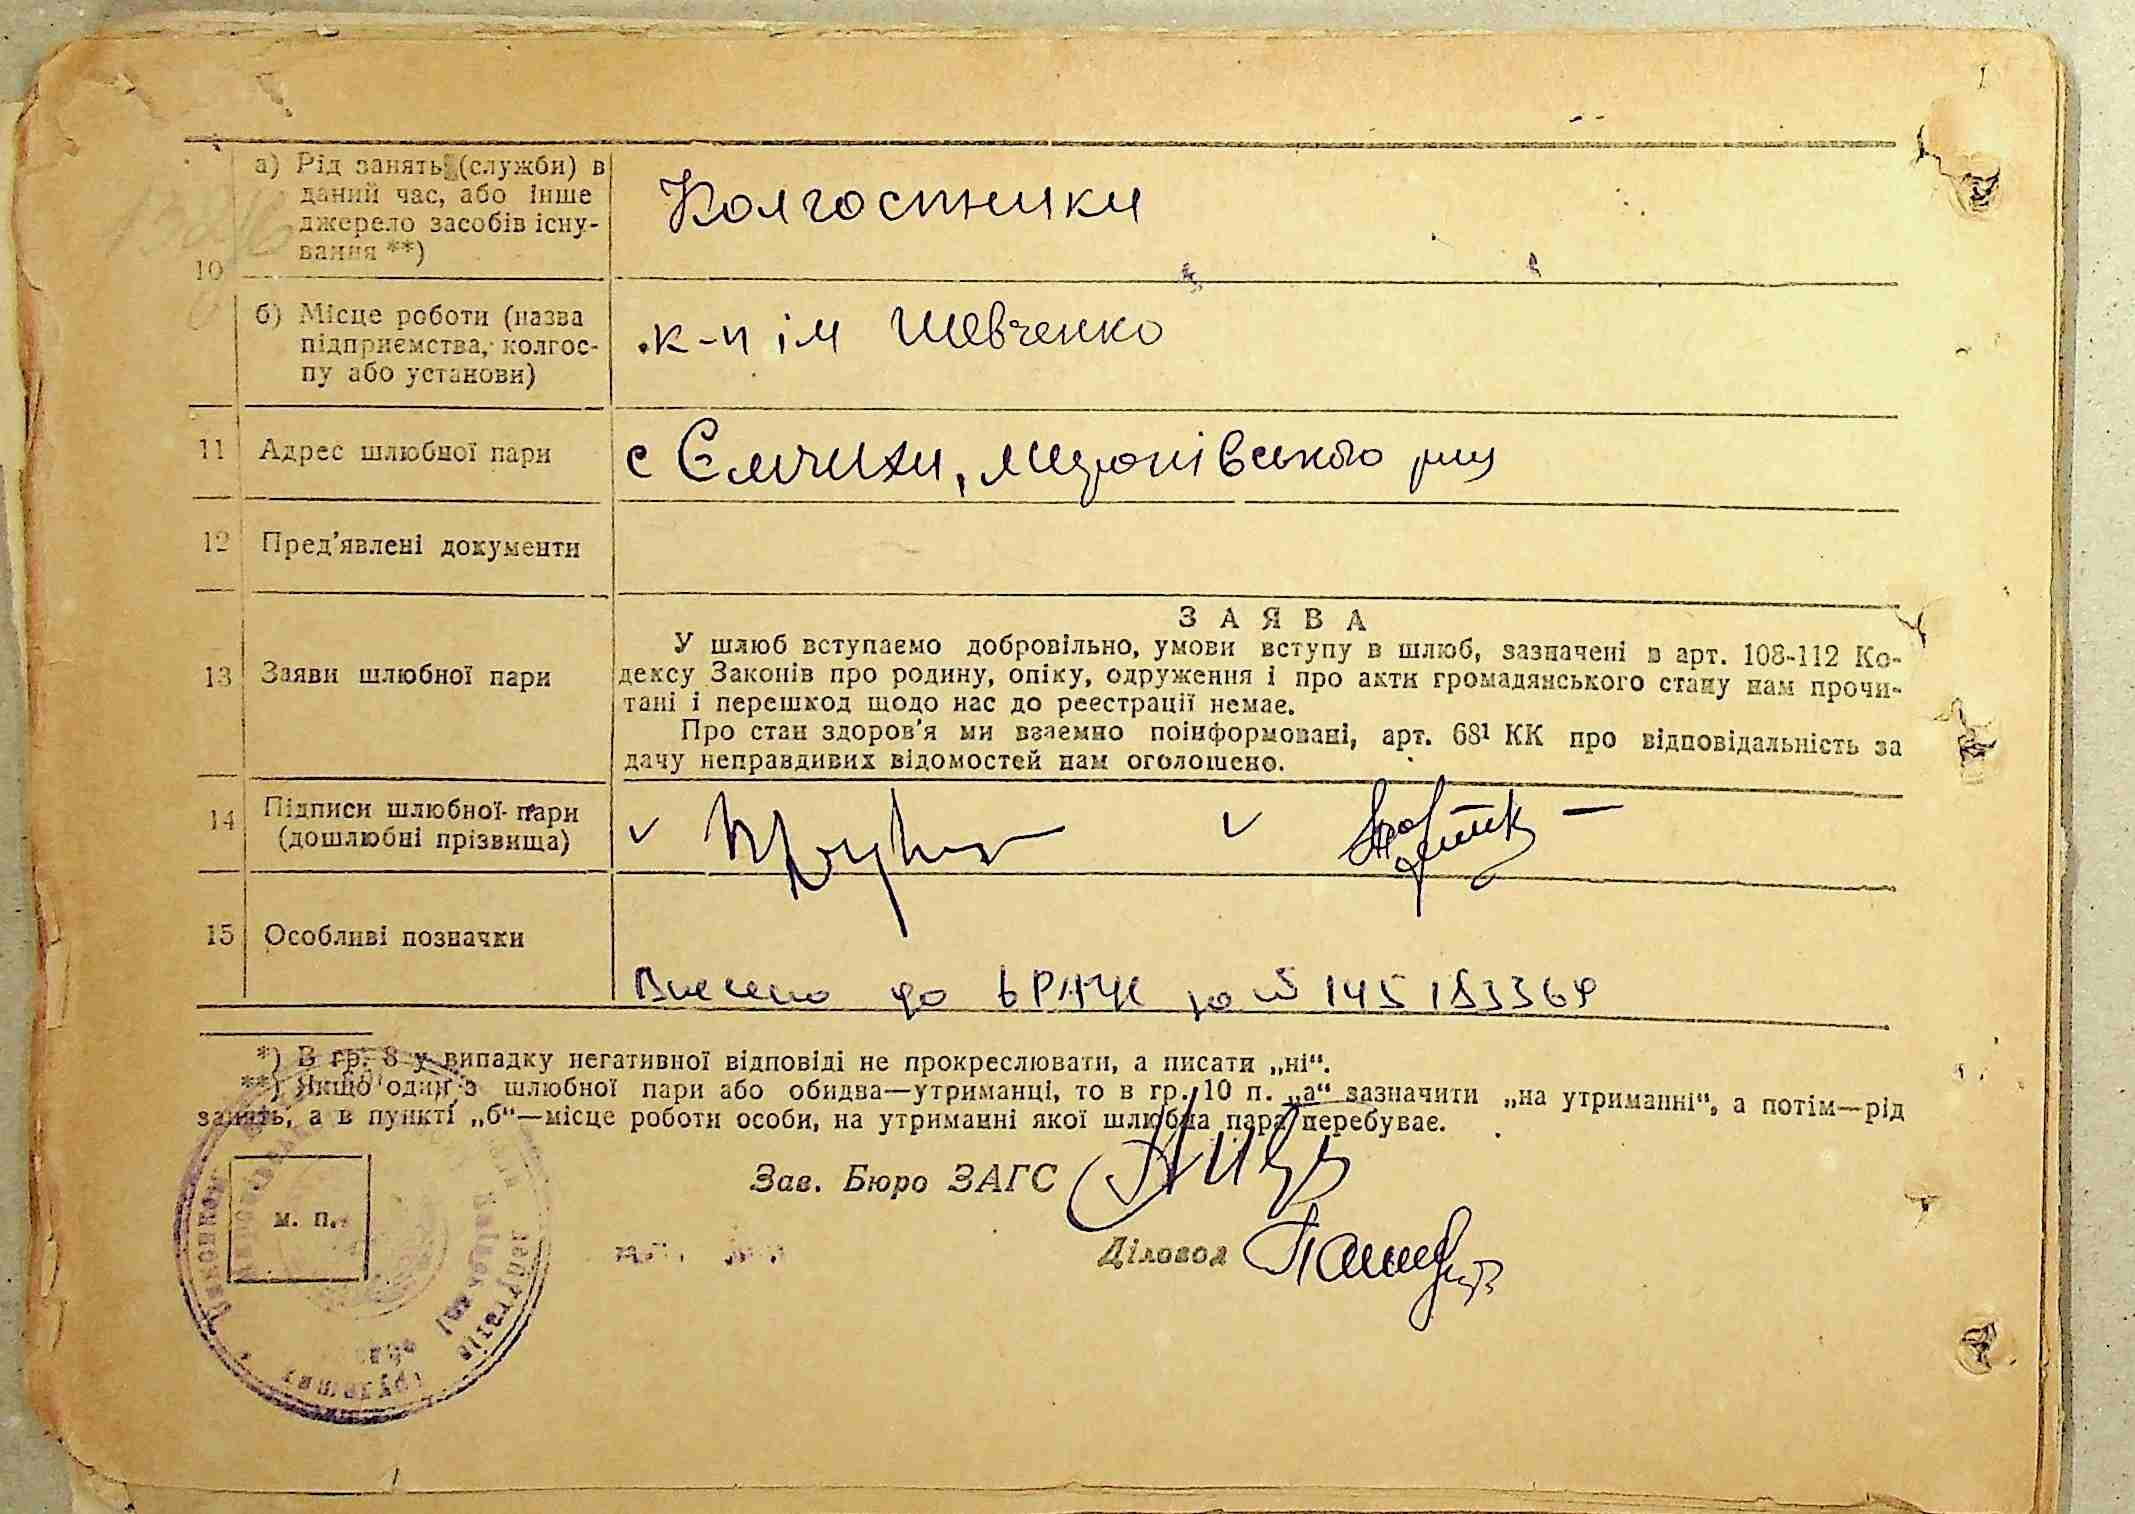 а) Рід занять (службы) в
даний час, або інше
джерело засобів існу-
вання **)
Колгоспники
10
б) Місце роботи (назва
підприємства, колгос-
пу або установи)
к-п ім Шевченко
11 Адрес шлюбної пари
с Ємчиха, Миронівського р-ну
12 Пред'явлені документи
13 Заяви шлюбної пари
ЗАЯВА
У шлюб вступаємо добровільно, умови вступу в шлюб, зазначені в арт. 108-112 Ко-
дексу Законів про родину, опіку, одруження і про акти громадянського стану нам прочи-
тані і перешкод щодо нас до реєстрації немає.
Про стан здоров'я ми взаємно поінформовані, арт. 68¹ КК про відповідальність за
дачу неправдивих відомостей нам оголошено.
14 Підписи шлюбної пари
(дошлюбні прізвища)
15 Особливі позначки
Внесено до за № 145183369
*) В гр. 8 у випадку негативної відповіді не прокреслювати, а писати „ні“.
**) Якщо один з шлюбної пари або обидва—утриманці, то в гр. 10 п. „а“ зазначити „на утриманні“, а потім—рід
занять, а в пункті „б“—місце роботи особи, на утриманні якої шлюбна пара перебуває.
Зав. Бюро ЗАГС
м. п.
Діловод
депутатів
трудящих